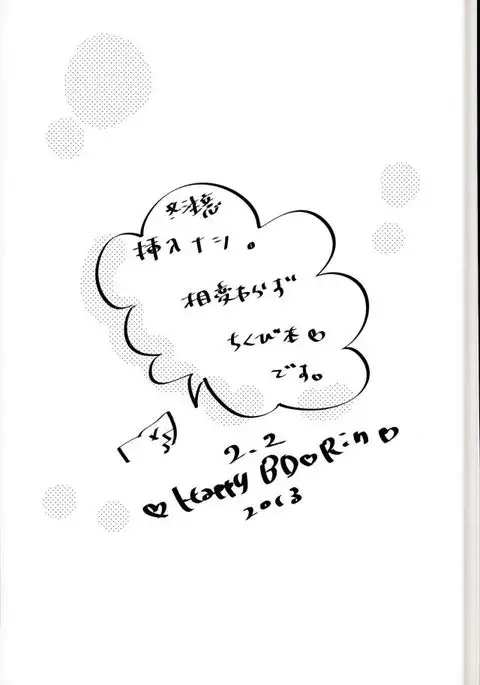 ※注意
挿入ナシ。
相変わらず
ちくび本♡
です。
2.2
♡ Happy BD♡Rin♡
2013